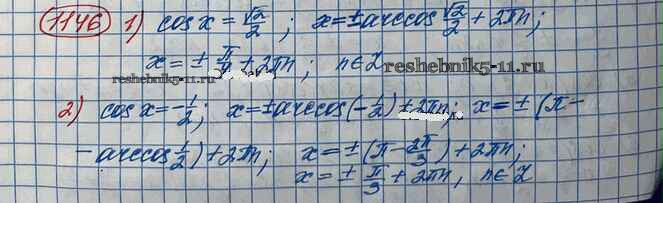 1146 1) cos x = √2/2 ; x = ± arccos √2/2 + 2πn ;
x = ± π/4 + 2πn ; n ∈ Z
reshebnik5-11.ru reshebnik5-11.ru
2) cos x = -1/2 ; x = ± arccos(-1/2) + 2πn ; x = ± (π -
- arccos 1/2) + 2πn ; x = ± (π - 2π/3) + 2πn ;
x = ± π/3 + 2πn , n ∈ Z